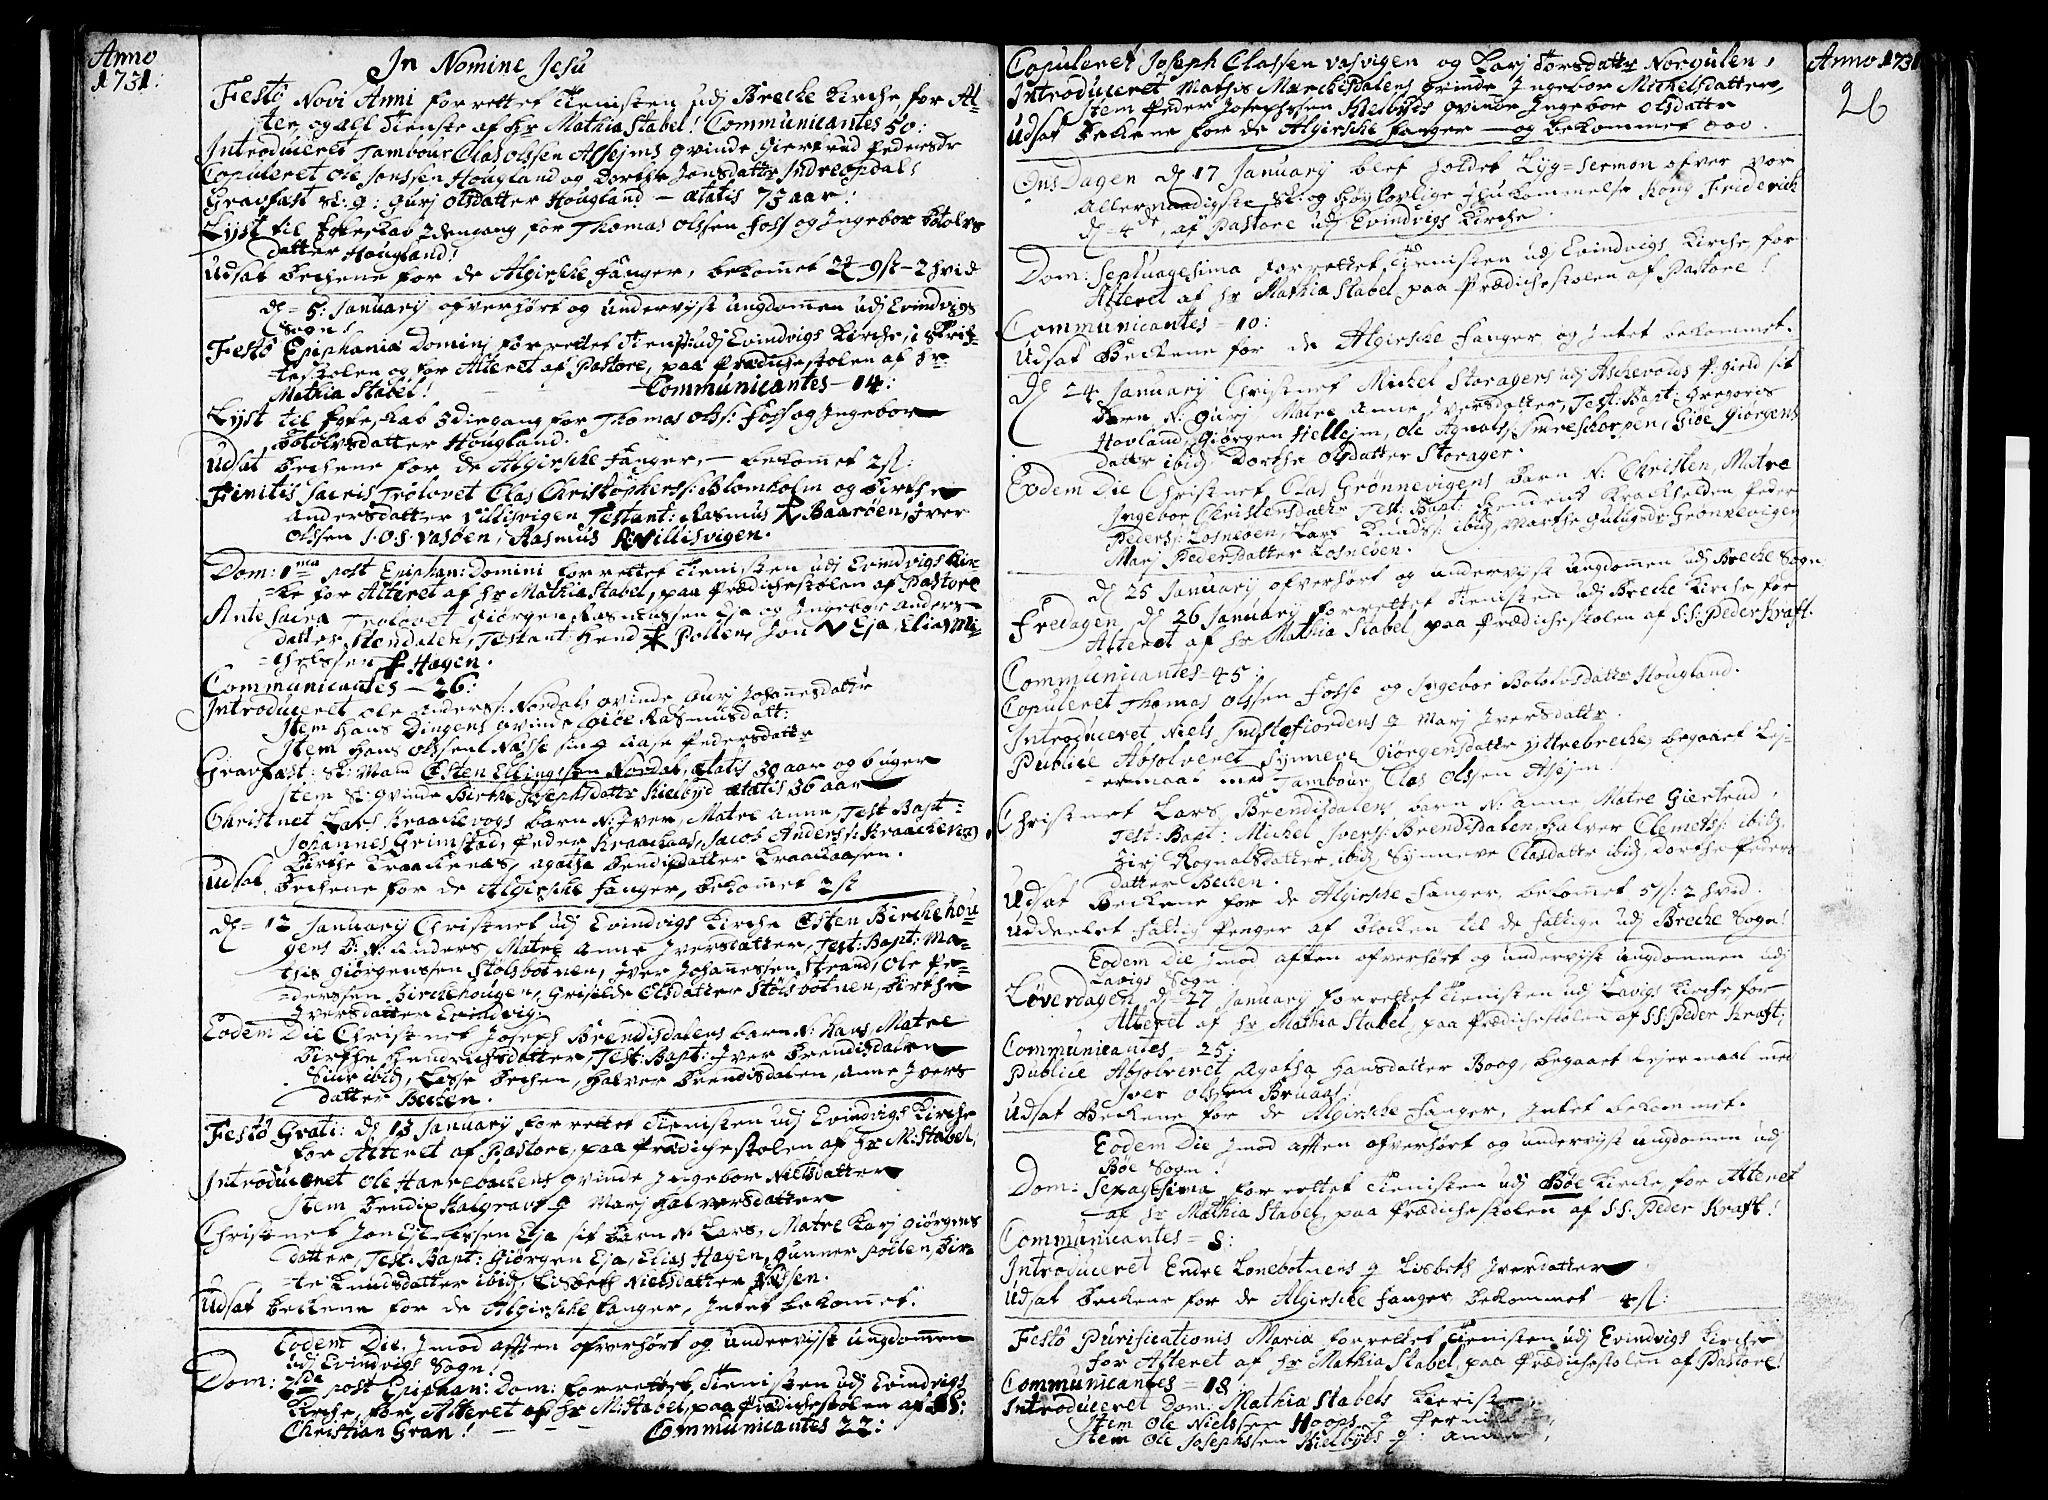 Anno
1731:
In Nomine Jesu
Festo Novi Anni forrettet Tienisten udj Breche Kirche, for Al-
ter og all Tieniste af Hr Mathia Stabel! Communicantes 50:
Introduceret Tambour Clas Olssen Assejms qvinde Giertrud Pedersdr
Copuleret Ole Jonssen Hougland og Dorthe Jonsdattr Indreopdal!
Gravfast Sl: q: Gurj Olsdatter Hougland – ætatis 73 aar:
Lyst til Ecteskab 2den gang for Thomas Olssen Foss og Ingebor Botolvs
datter Hougland!
Udsat Bechene for de Algirsche Fanger, bekomet 2 – 9 st – 2 hvid
d = 5: January ofverhørt og undervjst ungdommen udj Evindvigs
Sogn!
Festo Epiphania Dominj forrettet Tienist udj Evindvigs Kirche, i Skrif-
testolen og for Alteret af Pastore, paa Prædichestolen af Hr
Mathia Stabel! Communicantes – 14:
Lyst til Ecteskab 3die gang for Thomas Olss: Foss og Ingebor
Botolvsdatter Hougland.
Udsat Bechene for de Algirsche Fanger, – bekomet 2 st:
Finitis Sacris Trolovet Clas Christophers: Blomholm og Birthe
Andersdatter Villisvigen Testant: Rasmus Baarøen, Iver
Olssen I.O.S. Vasøen, Rasmus Villisvigen.
Dom: 1ma post Epiphan: Domini forrettet Tienisten udj Evindvigs Kir-
ke for Alteret af Hr Mathia Stabel, paa Prædichestolen af Pastore
Ante Sacra Trolovet Giørgen Rasmussen Eja og Ingebor Anders-
datter Stendalen, Testant: Hend Pollen, Jon Eja, Elias Mi-
chelssen Hagen.
Communicantes – 26:
Introduceret Ole Anderss: Nordals qvinde Gurj Johannesdattr
Item Hans Dingens qvinde Giøe Rasmusdatt:
Item Hans Olssen Næsse sin q Aase Pedersdattr
Gravfast: Sl: Mand Østen Ellingssen Nordal, ætatis 30 aar og 6 uger
Item Sl: qvinde Birthe Josephsdattr Kielbyd ætatis 36 aar
Christnet Lars Kraachevogs barn N: Iver, Matre Anne, Test Bapt:
Johannes Grimstad, Peder Kraachaas, Jacob Anderss: Kraachenes,
Birthe Kraachenæs, Agatha Bendixdatter Kraachaasen.
Udsat Bechene for de Algirsche Fanger, bekomet 2 st
d = 12 January Christnet udj Evindvigs Kirche Østen Birchehou-
gens B: N: Anders, Matre Anne Iversdatter, Test: Bapt: Ma-
this Giørgenssen Stølsbotnen, Iver Johanessen Strand, Ole Pe-
derssen Birchehougen, Griselde Elsdatter Stølsbotnen, Birthe
Iversdatter Evindvig.
Eodem Die Christnet Joseph Brendisdalens barn N: Hans, Matre
Birthe Hendrichsdatter, Test: Bapt: Iver Brendisdalen
Siur ibid, Lasse Bechen, Halver Brendisdalen, Anne Ivers
datter Bechen.
Festo Grati: d 13 January forrettet Tienisten udj Evindvigs Kirche
for Alteret af Pastore, paa Prædichestolen af Hr M: Stabel,
Introduceret Ole Hannebachens qvinde Ingebor Nielsdatter
Item Bendix Halgrave q Marj Halversdatter
Christnet Jon Eliessen Eja sit barn N: Lars, Matre Karj Giørgens
datter, Test: Bapt: Giørgen Eja, Elias Hagen, Gunner Pollen, Bir-
te Knudsdatter ibid, Lisbeth Nielsdatter Næssen.
Udsat Bechene for de Algirsche Fanger, Intet bekomet.
Eodem Die, Imod aften ofverhørt og undervjst ungdommen
udj Evindvigs Sogn!
Dom: 2da post Epiphan: Dom: forrettet Tienisten udj Evindvigs
Kirche, for Alteret af Hr M: Stabel, paa Prædichestolen af SS:
Christian Gran! – Communicantes 22:
Copuleret Joseph Classen Vasvigen og Karj Torsdattr Norgulen,
Introduceret Mathis Marchisdalens qvinde Ingebor Michelsdatter,
Item Peder Josephssen Kielbyds qvinde Ingebor Olsdattr
Udsat Bechene for de Algirsche Fanger – og bekommet 000.
OnsDagen d 17 January blef holdet Lyg-Sermon ofver vor
Allernaadigste Sl: og høylovlige Ihukommelse Kong Friderich
d – 4de, af Pastore udj Evindvigs Kirche.
Dom: Septuagesima forrettet Tienisten udj Evindvigs Kirche, for
Alteret af Hr Mathia Stabel, paa Prædichestolen af Pastore!
Communicantes – 10:
Udsat Bechene for de Algirsche Fanger, og Intet bekommet.
d 24 January Christnet Michel Storagers udj Aschevolds P: gield sit
Barn N: Gurj, Matre Anne Iversdatter, Test: Bapt: Gregorus
Hovland, Giørgen Hellejm, Ole Agnals: Indreskorpen, Giøe Giørgens
datter ibid, Dorthe Olsdatter Storager.
Eodem Die Christnet Clas Grønnevigens Barn N: Christen, Matre
Ingebor Christensdattr Test: Bapt: Hendrich Krachhelden, Peder
Peders: Losneøen, Lars Knuds: ibid, Marthe Grønnevigen
Marj Pedersdatter Losneøen.
d 25 January ofverhørt og undervjst ungdommen udj Breche Sogn,
Fredagen, d 26 January forrettet Tienisten udj Breche Kirche for
Alteret af Hr Mathia Stabel, paa Prædichestolen af SS: Peder Kraft.
Communicantes – 45:
Copuleret Thomas Olssen Fosse og Ingebor Botolvsdatter Hougland.
Introduceret Niels Indstefiordens q Marj Iversdattr.
Publice Absolveret Synneve Giørgensdattr Yttrebreche, begaaet Lej-
ermaal med Tambour Clas Olssen Assejm!
Christnet Lars Brendisdalens barn N: Anne, Matre Giertrud,
Test: Bapt: Michel Ivers: Brendisdalen, Halver Clemets: ibid,
Zirj Rognalsdatter, ibid, Synneve Clasdattr ibid, Dorthe Peders
datter Bechen.
Udsat Bechene for de Algirsche Fanger, bekomet 5 st: 2 hvid.
Uddeelet fattig Penger af Blochen til de fattige udj Breche Sogn!
Eodem Die Imod aften ofverhørt og undervjst ungdommen udj
Lavigs Sogn
Løverdagen d – 27 January forrettet Tienisten udj Lavigs Kirche, for
Alteret af Hr Mathia Stabel, paa Prædichestolen af SS: Peder Kraft,
Communicantes 25:
Publice Absolveret Agatha Hansdatter Boog, begaaet lejermaal med
Iver Olssen Bruaas!
Udsat Bechene for de Algirsche Fanger, Intet bekommet.
Eodem Die Imod aften ofverhørt og undervjst ungdommen udj
Bøe Sogn.
Dom: Sexagesima forrettet Tienisten udj Bøe Kirche, for Alteret
af Hr Mathia Stabel, paa Prædichestolen af SS: Peder Kraft!
Communicantes = 8:
Introduceret Endre Lonebotnens q Lisbeth Iversdatter
Udsat Bechene for de Algirsche Fanger bekommet 4 st:
Festo Purificationis Mariæ forrettet Tienisten udj Evindvigs Kirche
for Alteret af Hr Mathia Stabel, paa Prædichestolen af Pastore!
Communicantes = 18
Introduceret Dom: Mathia Stabels Kieriste,
Item Ole Nielssen Hoops q
Item Ole Josephssen Kielbyds q:
Anno 1731
26